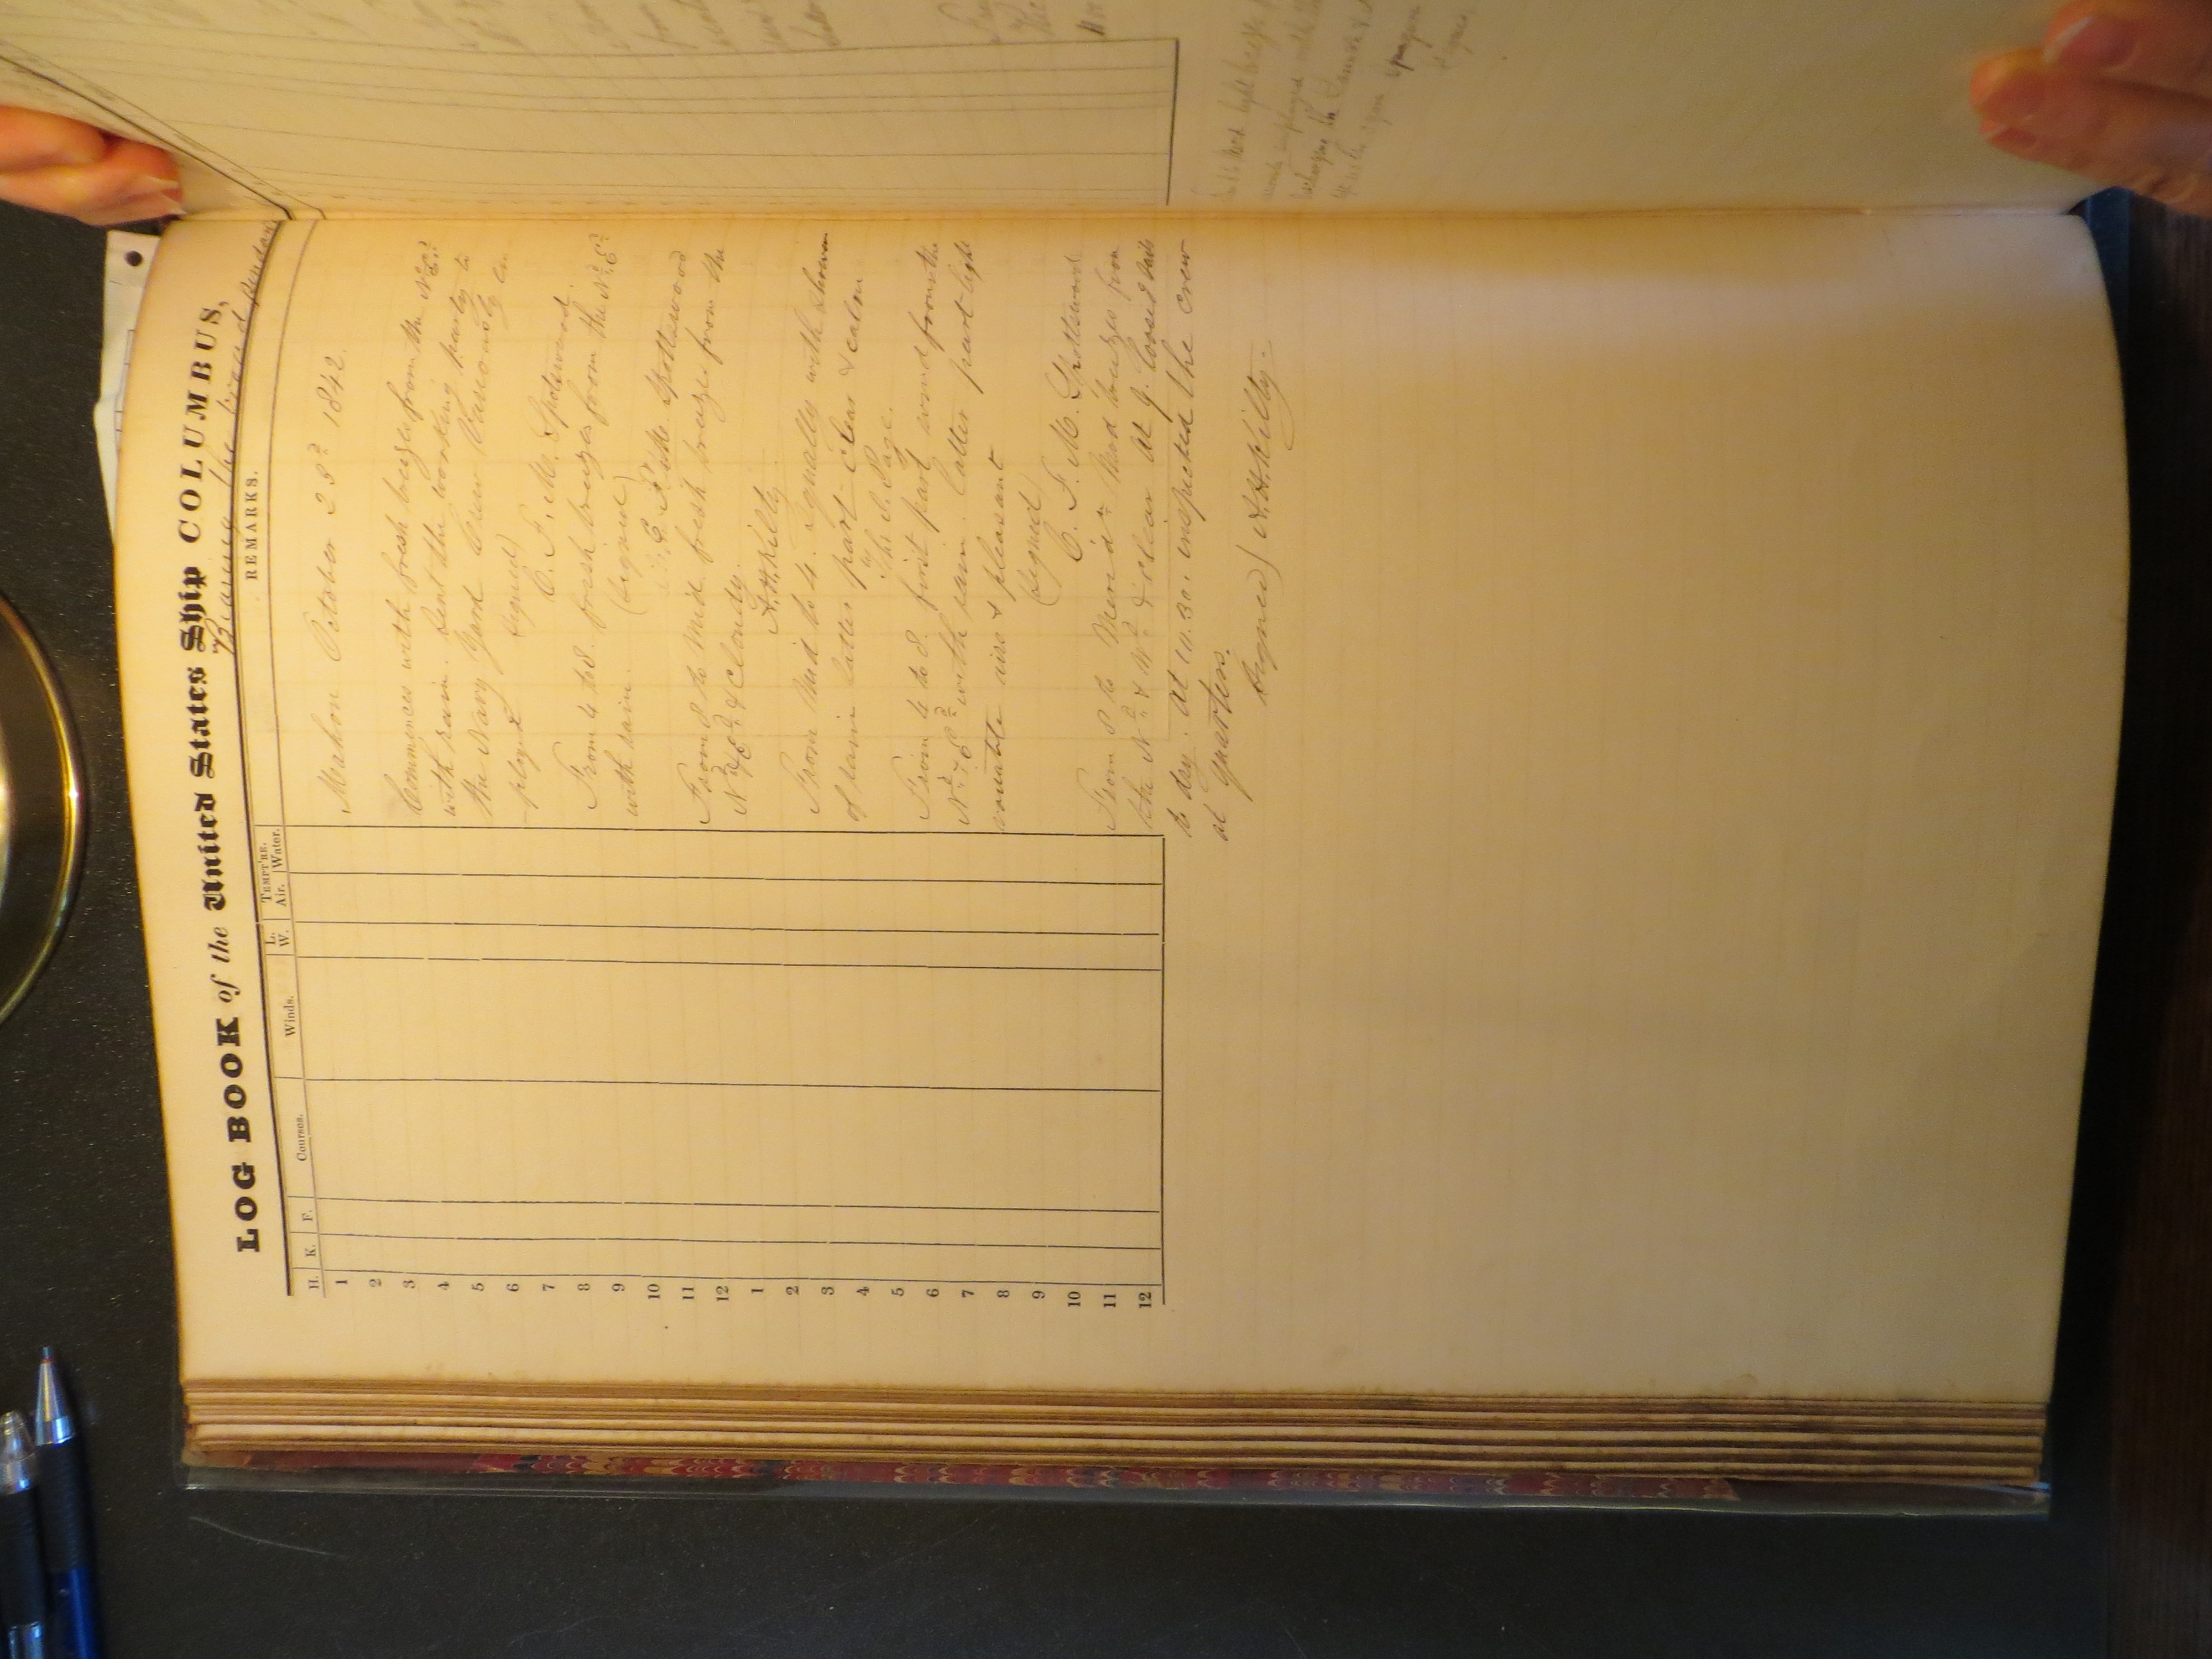 LOG BOOK of the United States Ship COLUMBUS,
Bearing the broad pendant
H. K. F. Courses. Winds. L. W. TEMPT'RE. Air. Water. REMARKS.
1
2
3
4
5
6
7
8
9
10
11
12
1
2
3
4
5
6
7
8
9
10
11
12
Mahon October 23d 1842.
Commences with fresh breezes from the Nd Ed
with rain. Sent the working party to
the Navy Yard Crew variously em
ployed
(signed)
C. F. M. Spotswood
From 4 to 8. fresh breezes from the Nd Ed
with rain. (signed)
C. F. M. Spottswood
From 8 to Mid. fresh breezes from the
Nd & Ed & Cloudy.
A. H. Kilty
From Mid to 4. Squally with showers
of rain latter part clear & calm
Th. J. Page.
From 4 to 8. first part wind from the
Nd & Ed with rain. latter part light
variable airs & pleasant
(signed
C. F. M. Spottswood
From 8 to Merid. Mod breezes from
the Nd & Wd & clear At 9. loosed sails
to dry. At 10.30. inspected the crew
at quarters.
signed) A. H. Kilty.